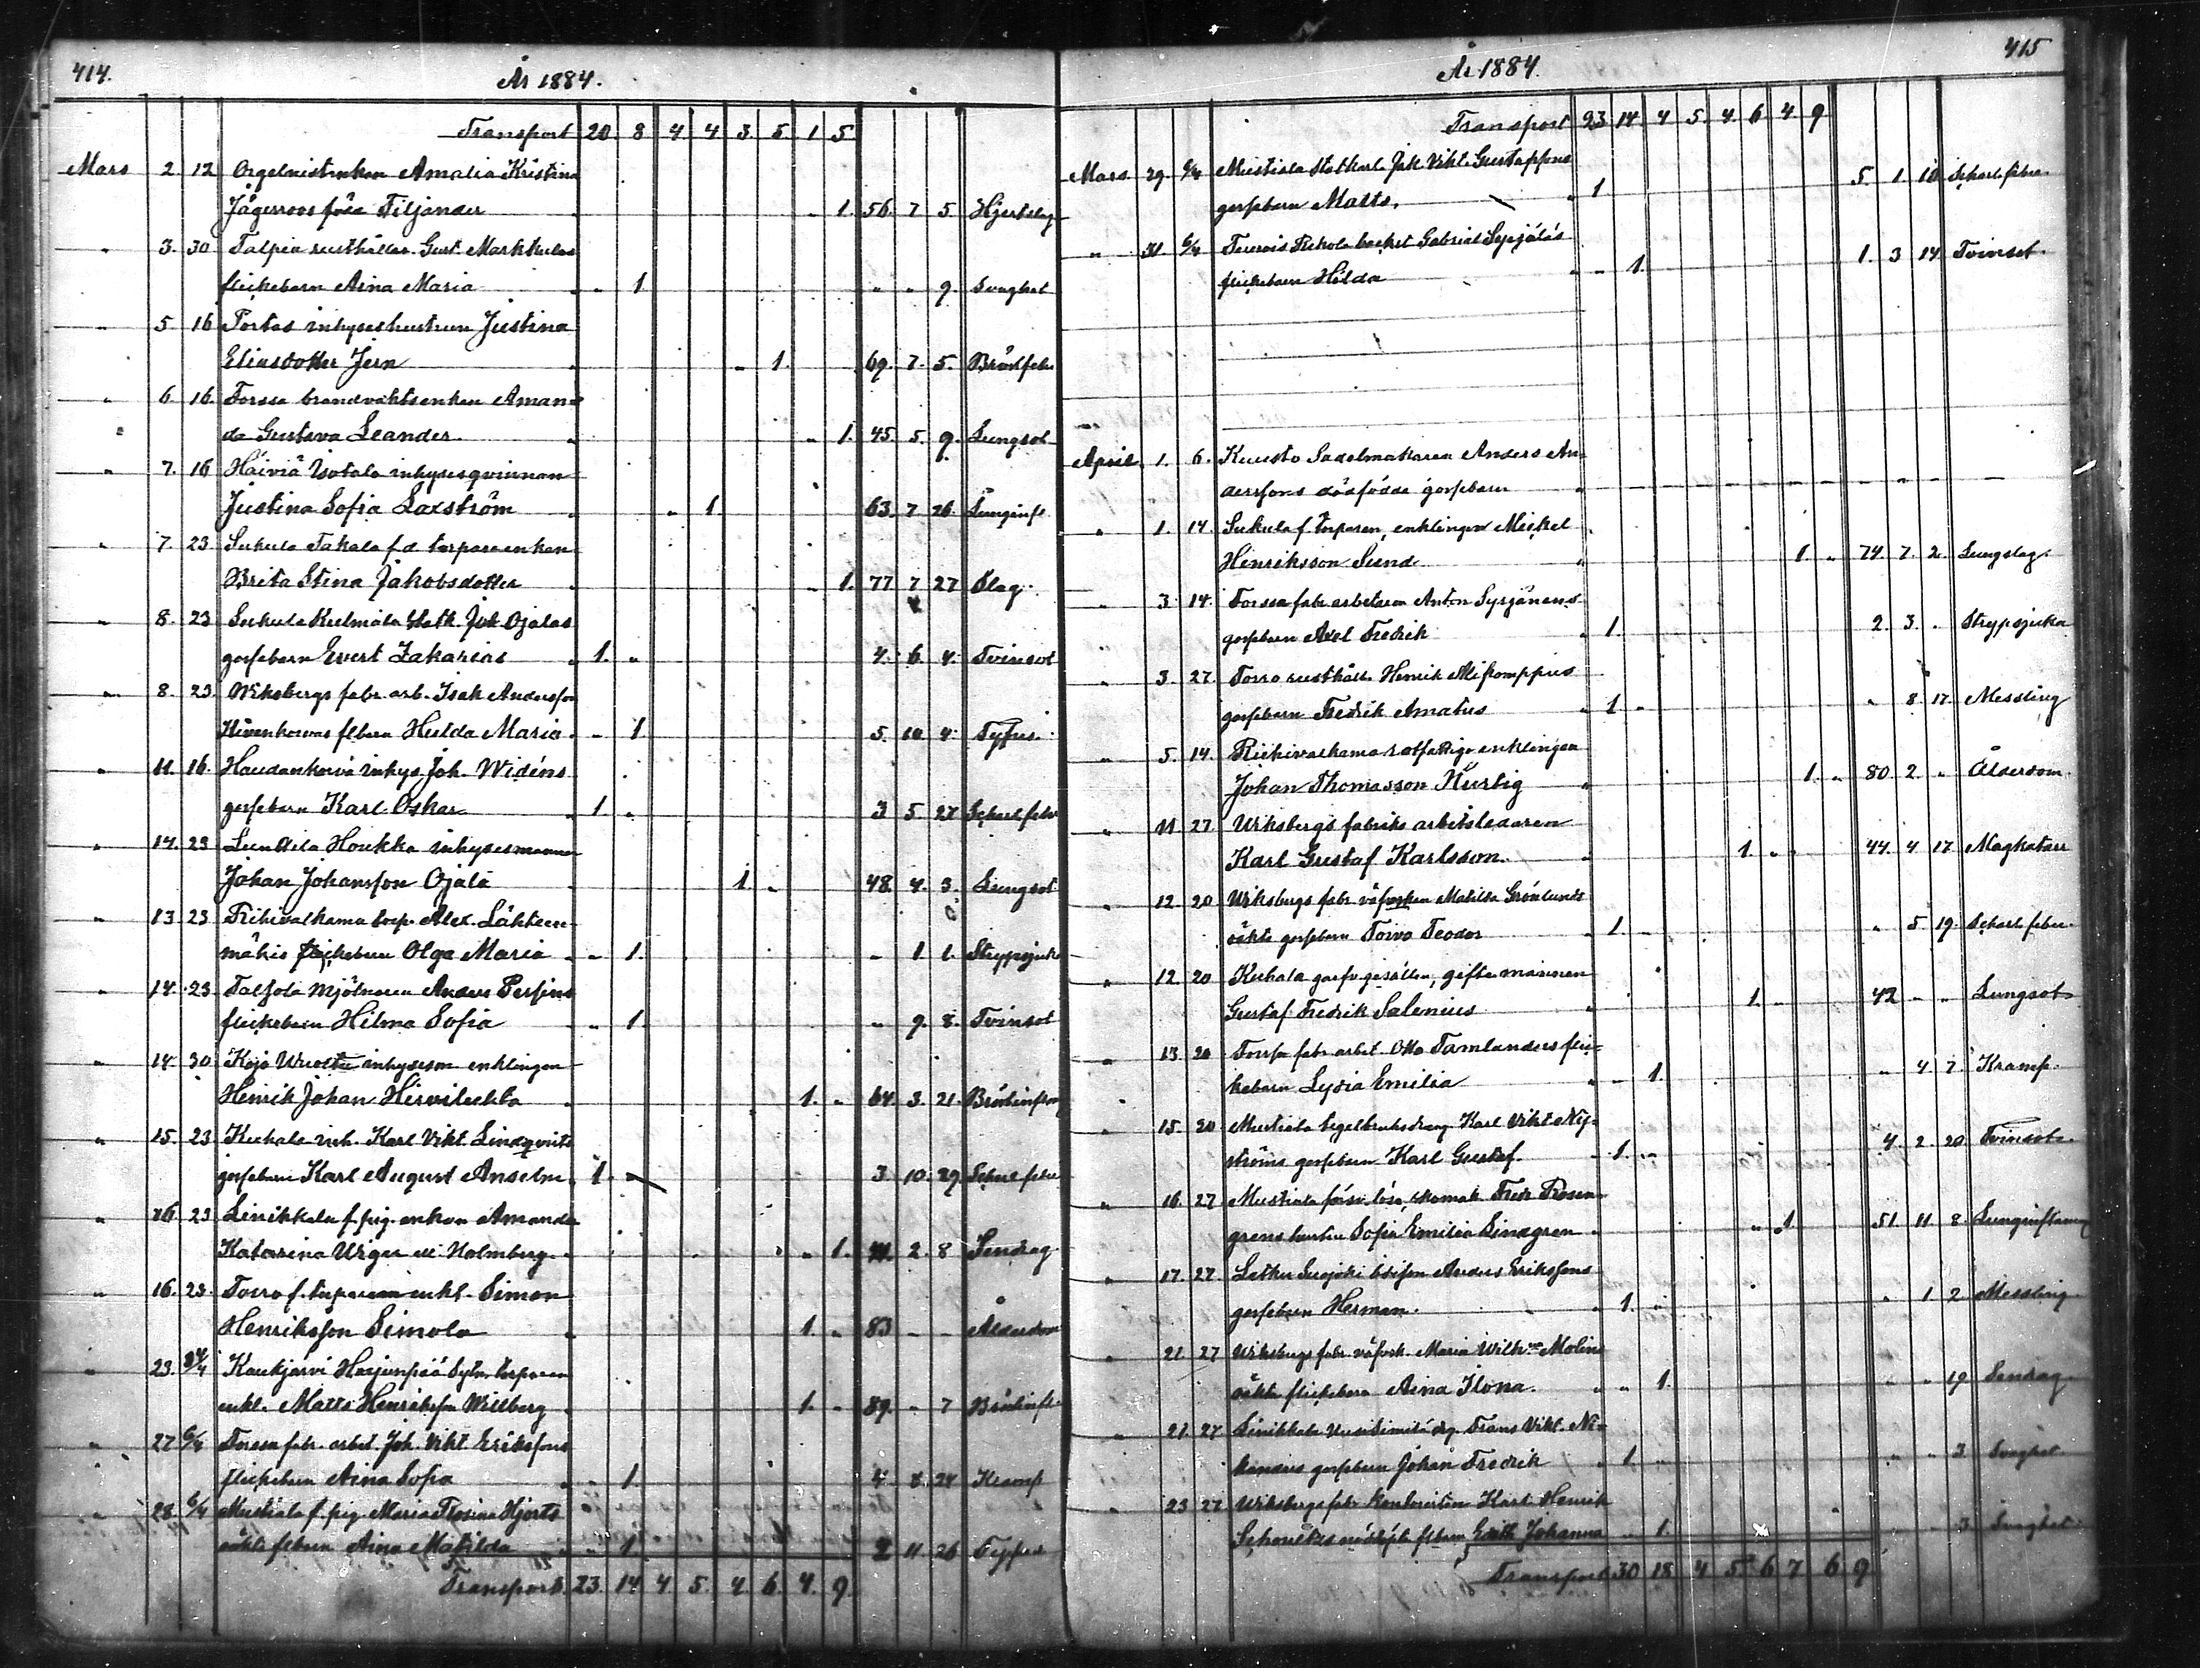 414.
År 1884.
Transport 20. 8 4 4 3. 5. 1 5
Mars 2 12 Orgelnistenkan Amalia Kristina
Jägerroos född Tiljander " 1. 56. 7 5 Hjertslag
" 3. 30 Talpia rusthållar. Gust. Markkulas
flickebarn Aina Maria " 1 " " 9. Svaghet
" 5 16 Tortas inhyseshustrun Justina
Eliasdotter Jern " 1. 69. 7. 5. Bröstfeber
" 6. 16. Forssa brandvaktsenkan Aman=
da Gustava Leander " 1. 45. 5. 9. Lungsot
" 7. 16 Häiviä Isotalo inhysesqvinnan
Justina Sofia Laxström " 1. 63. 7 26. Lunginfl.
" 7. 23 Sukula Takala f.d. torpareenkan
Brita Stina Jakobsdotter " 1. 77 7 27 Slag.
" 8. 23 Sukula Kulmala Statk. Joh Ojalas
gossebarn Evert Zakarias " 1. " 4. 6 4. Tvinsot
" 8. 23. Wiksbergs fabr. arb. Isak Andersson
flbarn Hulda Maria " 1. 5. 10 4. Tyfus.
" 11. 16. Haudankorva inhys. Joh. Widéns
gossebarn Karl Oskar 1 " 3 5 27 Scharl.feber
" 14. 23 Houkka inhysesmannen
Johan Johansson Ojala 1 " 48. 4. 3. Lungsot
" 13 23 Riihivalkama torp. Alex. Lähteen=
mäkis flickebarn Olga Maria " 1. " 1 1. Strypsjuka
" 14. 23 Talsola Mjölnaren Anders
flickebarn Hilma Sofia " 1. " 9. 8. Tvinsot
" 14. 30 Kojo inhyseson enklingen
Henrik Johan Hirvilahto 1. " 64. 3. 21. Bröstinflam
" 15. 23 Kuhala inh. Karl Vikt. Lindqvists
gossebarn Karl August Anselm 1. " 3 10. 29. Scharl.feber
" 16 23 Linikkala f. pig. enkan Amanda
Katarina Holmberg " 1. 2. 8 Sendrag
" 16. 23. Torro f. torparen enkl. Simon
Henriksson Simola 1. " 83 - - Ålderdom
" 23. Kaukjärvi Harjunpää torparen
enkl. Matts Henriksson Willberg 1. " 89. " 7 Bröstinfl.
" 27 6/4 Forssa fabr. arbet. Joh. Vikt Erikssons
flickebarn Aina Sofia " 1. 4. 8 24 Kramp
" 28. 6/4 Mustiala f. pig. Maria Rosina Hjorts
oäkta flbarn Aina Matilda " 1. 2 11 26 Tyfus
Transport. 23. 14 4. 5. 4. 6. 4. 9.
415
År 1884.
Transport 23 14. 4 5. 4. 6 4. 9
Mars 29. 6/4 Mustiala Statkarl Joh. Vikt. Gustafssons
gossebarn Matts. " 1 5. 1. 10 Scharl.feber
" 31. 6/4 Gabriel Syrjäläs
flickebarn Hilda " 1. 1. 3 14 Tvinsot.
April. 1. 6. Kuusto Sadelmakaren Anders An=
derssons dödfödde gossebarn
" 1. 14. Sukula f. torparen, enklingen Mickel
Henriksson Sund 1. " 74. 7. 2. Lungslag.
" 3. 14. Forssa fabr. arbetaren Anton Syrjänens
gossebarn Axel Fredrik " 1. 2. 3. " Strypsjuka
" 3. 27. Torro rusthåll. Henrik
gossebarn Fredrik Amatus " 1 " " 8 17. Messling
" 5. 14. Riihivalkama rotfattige enklingen
Johan Thomasson Kurtig 1. " 80. 2. " Ålderdom.
" 11 27 Wiksbergs fabriks arbetsledaren
Karl Gustaf Karlsson 1. " 44. 4 17. Magkatarr
" 12. 20 Wiksbergs fabr. väfverskan Matilda Grönlunds
oäkta gossebarn Toivo Teodor 1. " " 5 19. Scharl.feber.
" 12. 20 Kuhala garfv.gesällen, gifte mannen
Gustaf Fredrik Salenius 1. " 42 " " Lungsot
" 13. 20 Forssa fabr. arbet. Otto Tamlanders flic=
kebarn Lydia Emilia " 1. " 4. 7 Kramp.
" 15. 20 Mustiala tegelbruksdräng Karl Vikt. Ny=
ströms gossebarn Karl Gustaf. 1. " 4. 2. 20 Tvinsot.
" 16. 27 Mustiala skomak. Fredr. Rosen=
grens hustru Sofia Emilia Lindgren " 1. 51. 11 8. Lunginflam
" 17. 27. Anders Erikssons
gossebarn Herman. " 1. " " 1 2 Messling
" 21. 27 Wiksbergs fabr. väfvsk. Maria Molins
oäkta flickebarn Aina Ilona. " " 1. " " 19 Sendrag
" 21. 27 Linikkala Frans Vikt.
gossebarn Johan Fredrik " 1. " " " 3 Svaghet
" 23 27 Wiksbergs fabr. kontoristen Karl Henrik
flbarn Edith Johanna " 1. 3 Svaghet
Transport 30 18 4 5 6 7 6 9